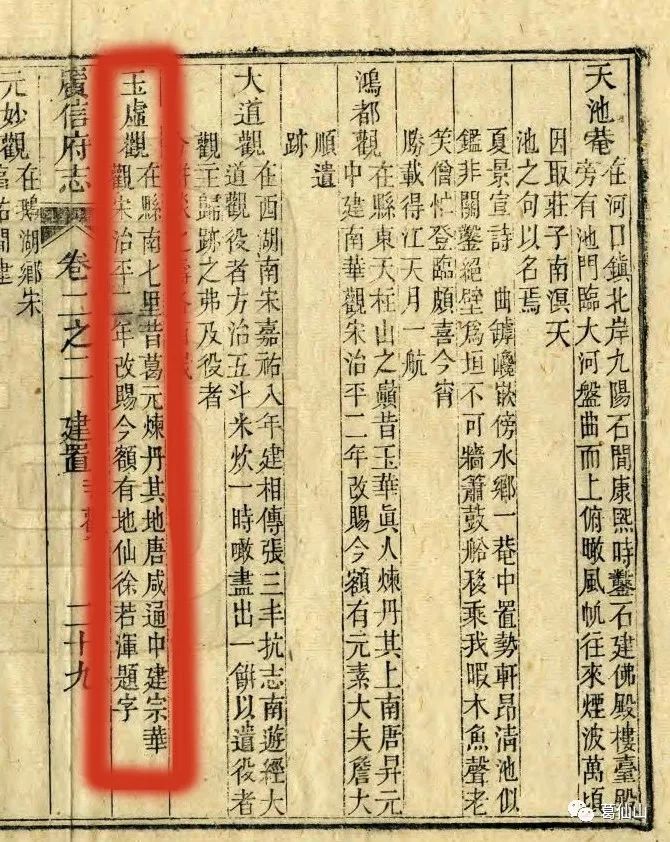 天池菴
在河口鎮北岸九陽石間康熙時鑿石建佛殿樓臺殿
旁有池門臨大河盤曲而上俯瞰風帆往來煙波萬頃
因取莊子南溟天
池之句以名焉
夏景宣詩 曲罅巉嵌傍水鄉一菴中置勢軒昂清池似
鑑非關鑿絕壁爲垣不可牆簫鼓船移乘我暇木魚聲老
笑僧忙登臨頗喜今宵
勝載得江天月一航
鴻都觀
在縣東天柱山之巔昔玉華眞人煉丹其上南唐昇元
中建南華觀宋治平二年改賜今額有元素大夫詹大
順遺
跡
大道觀
在西湖南宋嘉祐八年建相傳張三丰抗志南遊經大
道觀役者方治五斗米炊一時噉盡出一餅以遺役者
觀主歸跡之弗及役者
玉虛觀
在縣南七里昔葛元煉丹其地唐咸通中建宗華
觀宋治平二年改賜今額有地仙徐若渾題字
廣信府志 卷二之二 建置 二十九
元妙觀
在鵝湖鄉宋
葛仙山